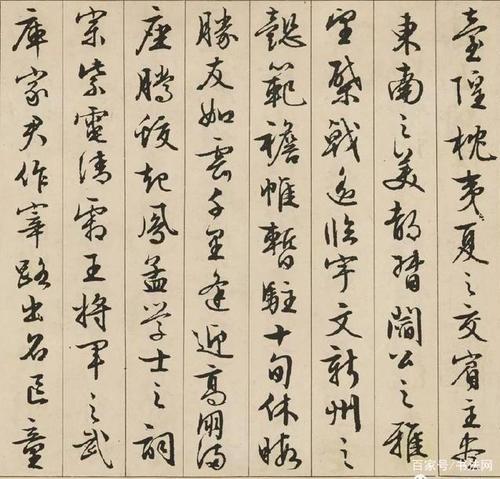 臺隍枕夷夏之交賓主盡
東南之美都督閻公之雅
望棨戟遥臨宇文新州之
懿範襜帷暫駐十旬休暇
勝友如雲千里逢迎高朋滿
座騰蛟起鳳孟学士之詞
宗紫電清霜王将軍之武
庫家君作宰路出名區童
百家号/书法网